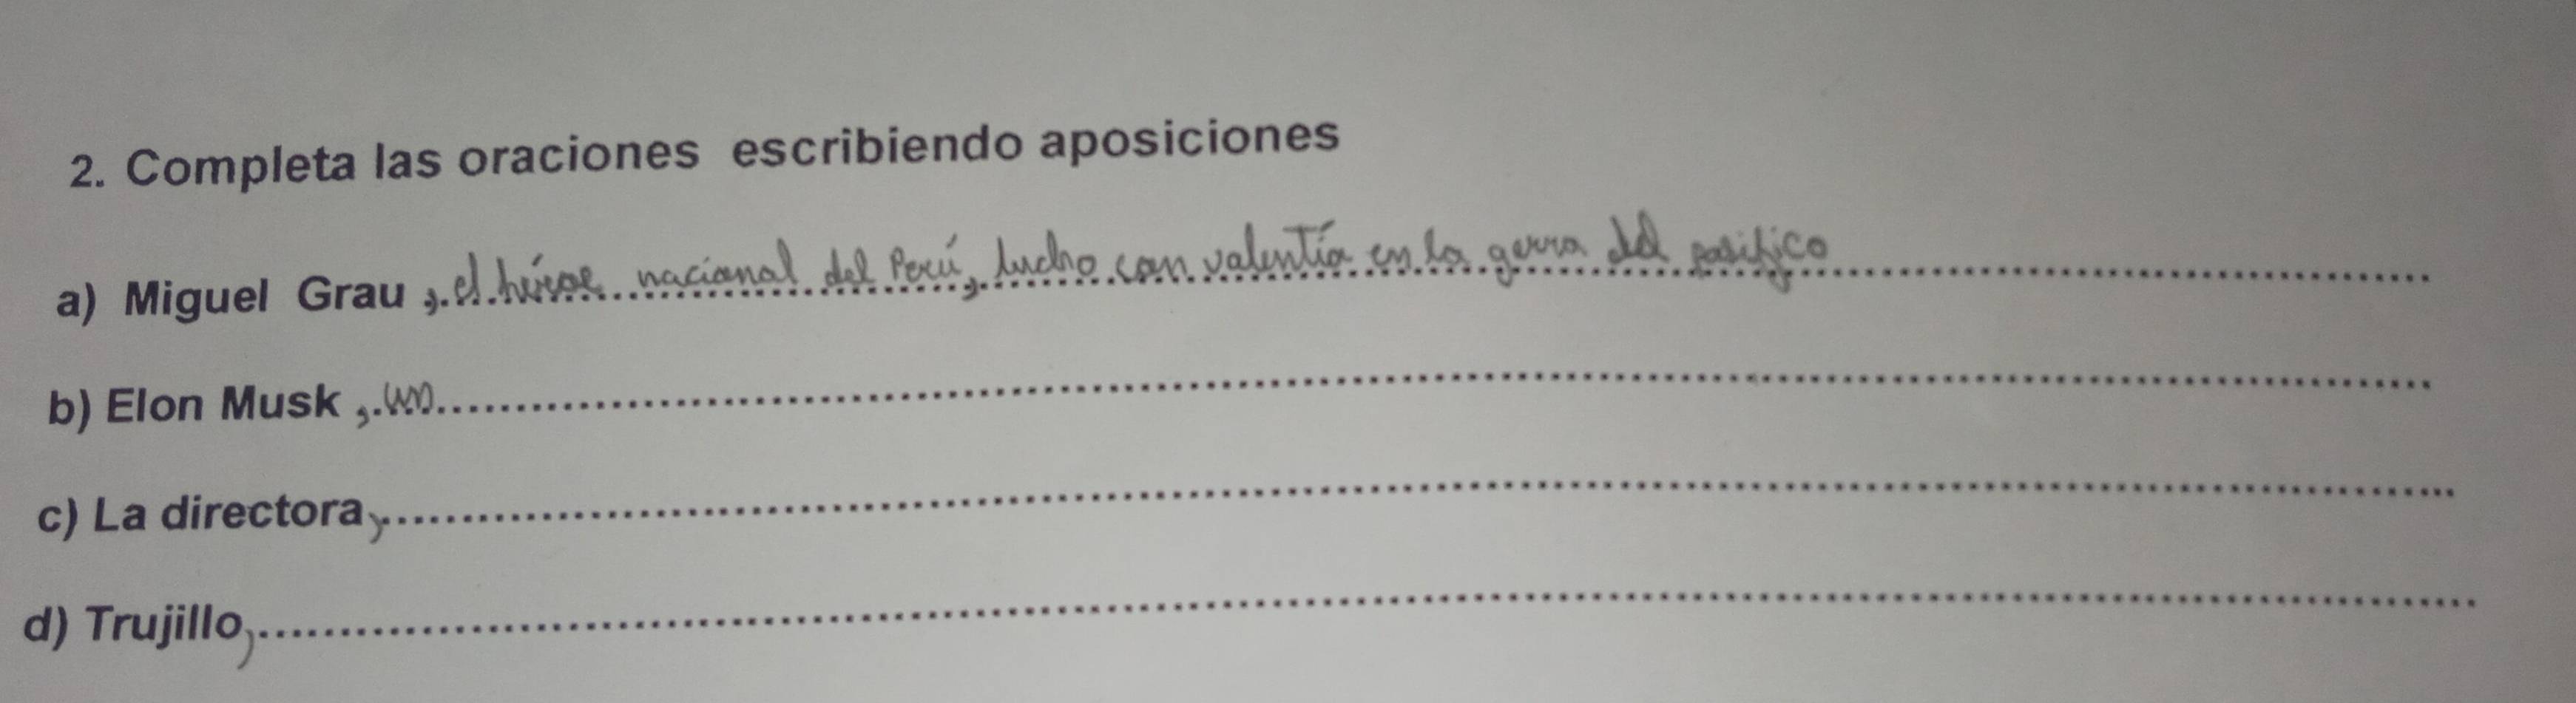 2. Completa las oraciones escribiendo aposiciones
a) Miguel Grau , el héroe nacional del Perú, lucho con valentía en la gerra del pasifico
b) Elon Musk , un
c) La directora,
d) Trujillo,